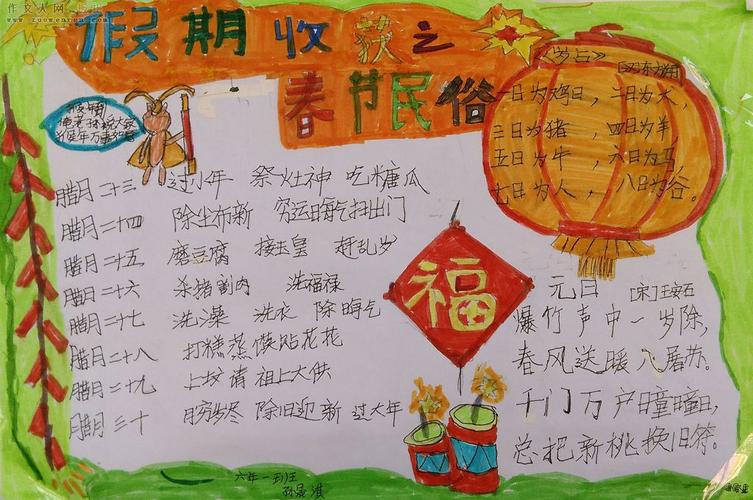 作文人网
www.zuowenren.com
假期收获之
春节民俗
猴年万事如意
腊月二十三 过小年 祭灶神 吃糖瓜
腊月二十四 除尘布新 穷运晦气扫出门
腊月二十五 磨豆腐 接玉皇 赶乱岁
腊月二十六 杀猪割肉 洗福禄
腊月二十七 洗澡 洗衣 除晦气
腊月二十八 打糕蒸馍贴花花
腊月二十九 上坟请祖上大供
腊月三十 月穷岁尽 除旧迎新 过大年
六年一班
《岁占》
[汉]东方朔
一日为鸡日，二日为犬，
三日为猪，四日为羊
五日为牛，六日为马
七日为人，八日为谷。
福
元日 [宋]王安石
爆竹声中一岁除，
春风送暖入屠苏。
千门万户曈曈日，
总把新桃换旧符。